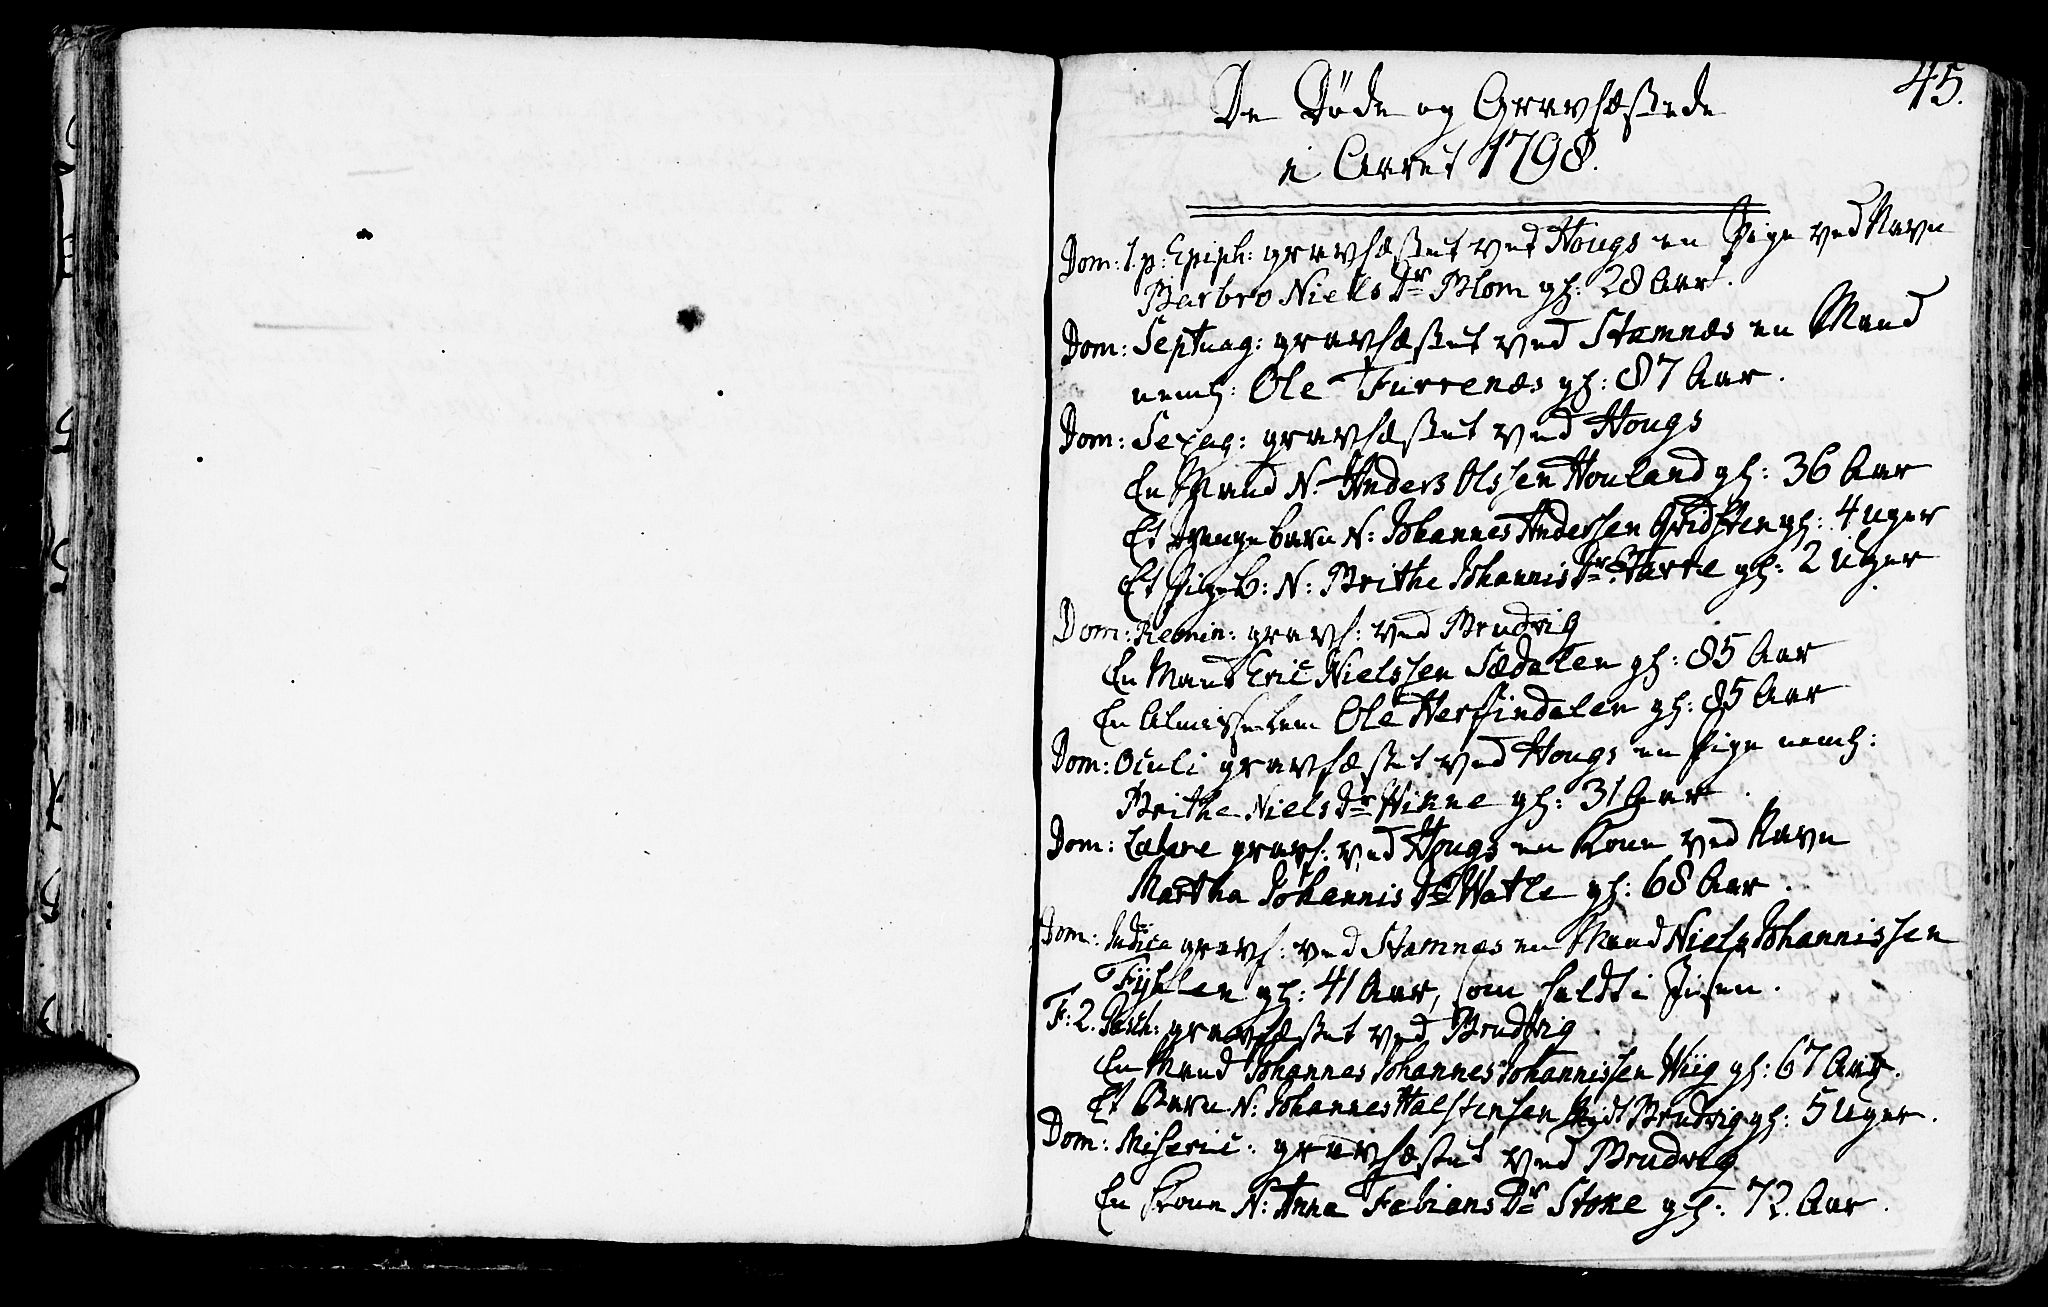 45.
De Døde og Gravfæstede
i Aaret 1798.
Dom: 1. p: Epiph: gravfæstet ved Hougs en Pige ved Navn
Barbro Niels Dr Blom gl: 28 Aar.
Dom: Septuag: gravfæstet ved Stamnæs en Mand
neml: Ole Furrenæs gl: 87 Aar.
Dom: Sexag: gravfæstet ved Hougs
En Mand N: Anders Olssen Houland gl: 36 Aar
Et Drengebarn N: Johannes Anderssen Gridsten gl: 4 uger
Et Pigeb: N: Brithe Johannis Dr gl: 2 Uger
Dom: Remin: gravf: ved Brudvig
En Mand Eric Nielssen Sædalen gl: 85 Aar
En Almisselem Ole Herfindalen gl: 85 Aar
Dom: Oculi gravfæstet ved Hougs en Pige neml:
Brithe Niels Dr Hinne gl: 31 Aar.
Dom: Lætare gravf: ved Hougs en Kone ved Navn
Martha Johannis Dr Watle gl: 68 Aar.
Dom: Judica gravf: ved Stamnæs en Mand Niels Johannissen
gl: 41 Aar, som faldt i Jisen.
F: 2. Pasch: gravfæstet ved Brudvig
En Mand Johannes Johannes Johannissen Wiig gl: 67 Aar.
Et Barn N: Johannes Halstensen Brudvig gl: 5 Uger.
Dom: Miseric: gravfæstet ved Brudvig
En Kone N: Anna Fabians Dr Stoke gl: 72. Aar.